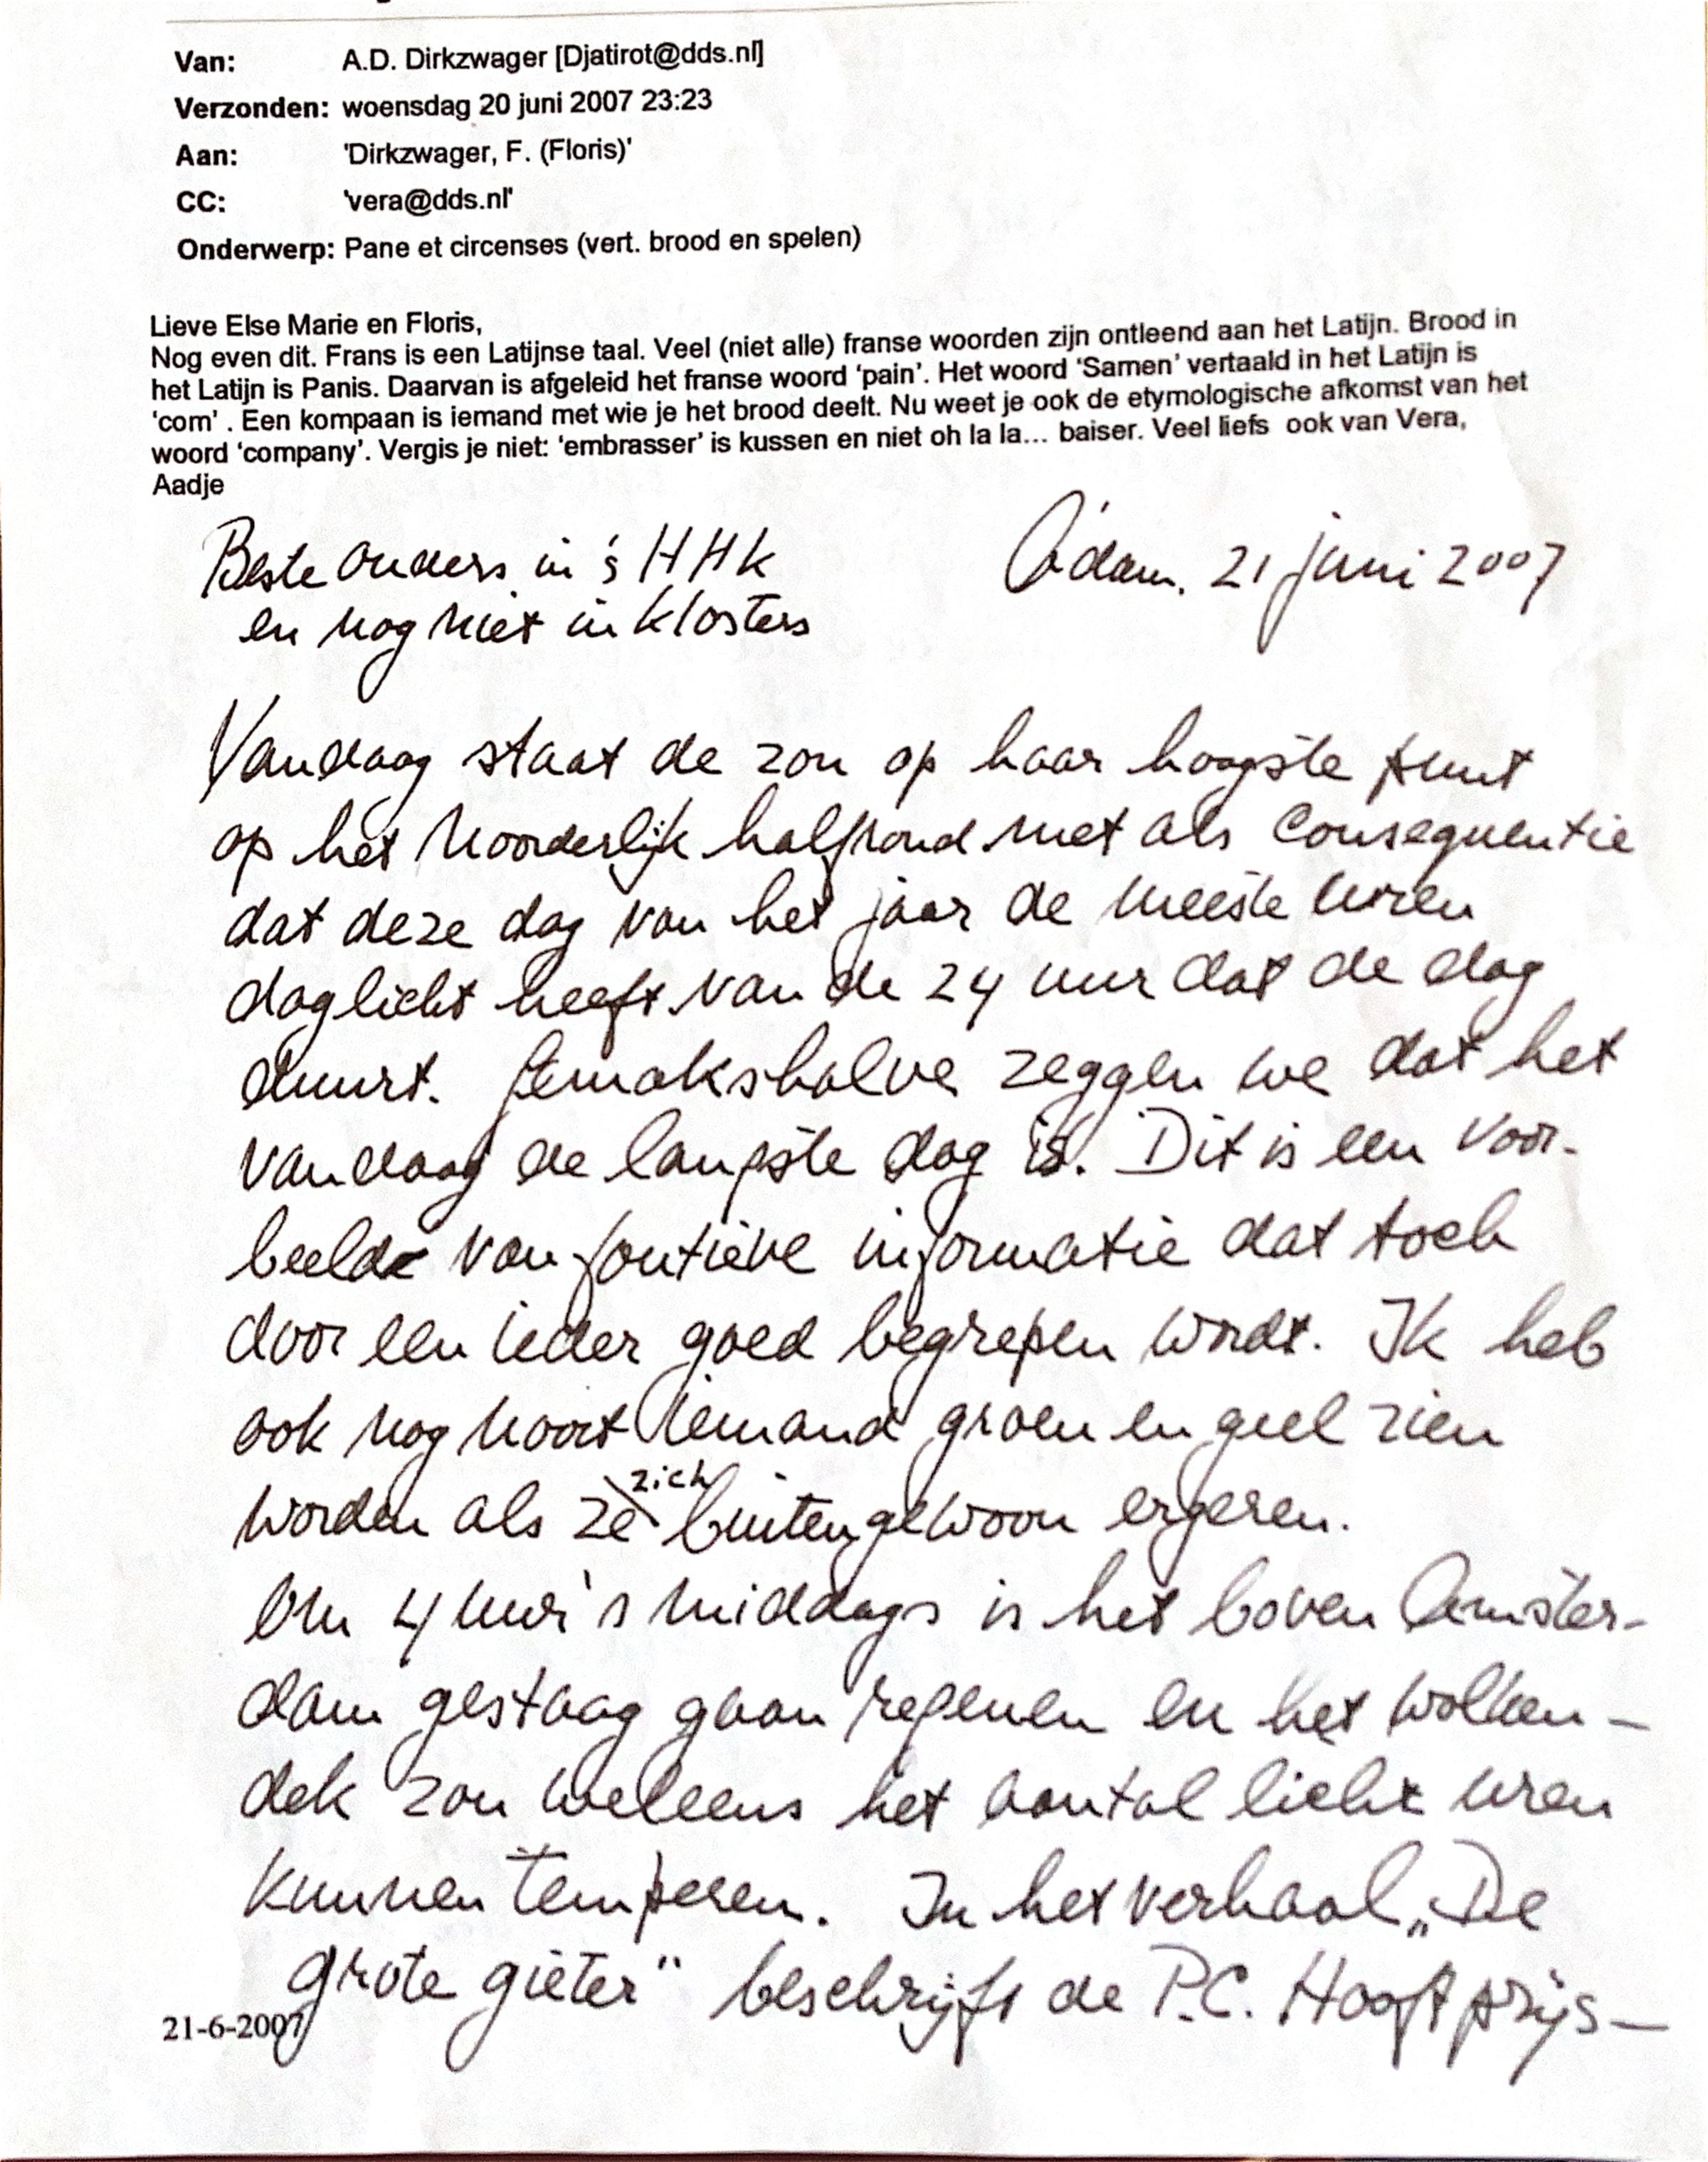 Van: A.D. Dirkzwager [Djatirot@dds.nl]
Verzonden: woensdag 20 juni 2007 23:23
Aan: 'Dirkzwager, F. (Floris)'
CC: 'vera@dds.nl'
Onderwerp: Pane et circenses (vert. brood en spelen)
Lieve Else Marie en Floris,
Nog even dit. Frans is een Latijnse taal. Veel (niet alle) franse woorden zijn ontleend aan het Latijn. Brood in
het Latijn is Panis. Daarvan is afgeleid het franse woord 'pain'. Het woord 'Samen' vertaald in het Latijn is
'com' . Een kompaan is iemand met wie je het brood deelt. Nu weet je ook de etymologische afkomst van het
woord 'company'. Vergis je niet: 'embrasser' is kussen en niet oh la la... baiser. Veel liefs ook van Vera,
Aadje
Beste ouders in 's HHk
en nog niet in Klosters
A'dam. 21 juni 2007
Vandaag staat de zon op haar hoogste punt
op het noorderlijk halfrond met als consequentie
dat deze dag van het jaar de meeste uren
daglicht heeft van de 24 uur dat de dag
duurt. Gemakshalve zeggen we dat het
vandaag de langste dag is. Dit is een voor-
beeld van foutieve informatie dat toch
door een ieder goed begrepen wordt. Ik heb
ook nog nooit iemand groen en geel zien
worden als ze zich buitengewoon ergeren.
Om 4 uur 's middags is het boven Amster-
dam gestaag gaan regenen en het wolken-
dek zou weleens het aantal licht uren
kunnen temperen. In het verhaal „De
grote gieter" beschrijft de P.C. Hooft prijs-
21-6-2007